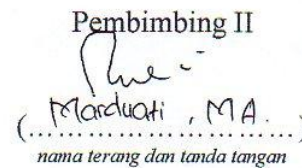 Pembimbing II
(Marduati, MA.)
nama terang dan tanda tangan